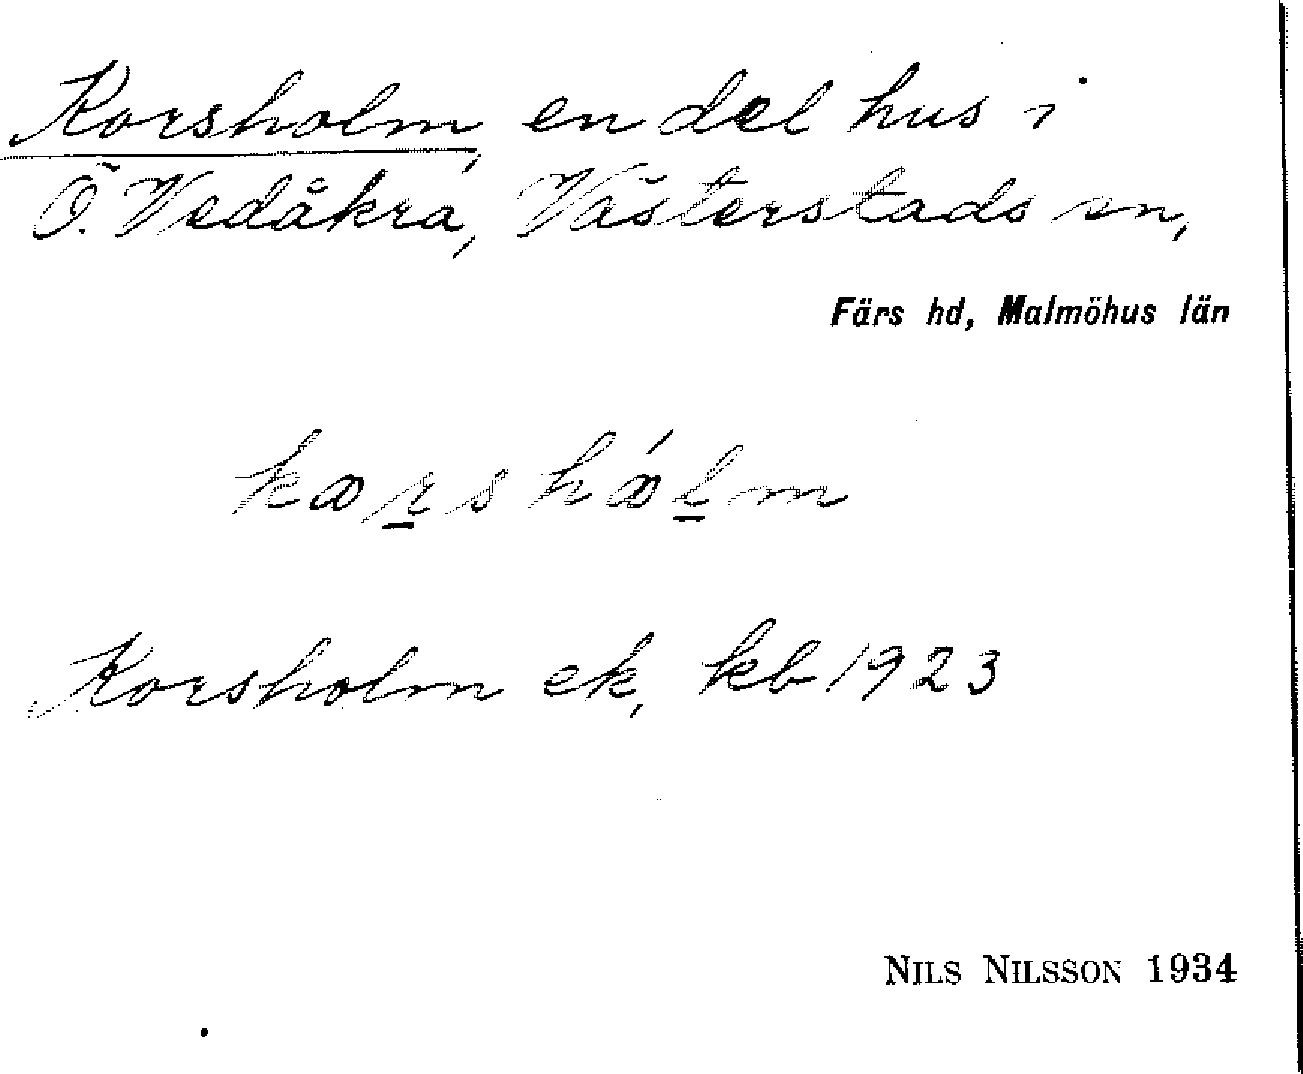 Korsholm, en del hus i
Ö. Vedåkra, Västerstads sn,
Färs hd, Malmöhus län
kørshǿlm
Korsholm ek, kb 1923
NILS NILSSON 1934